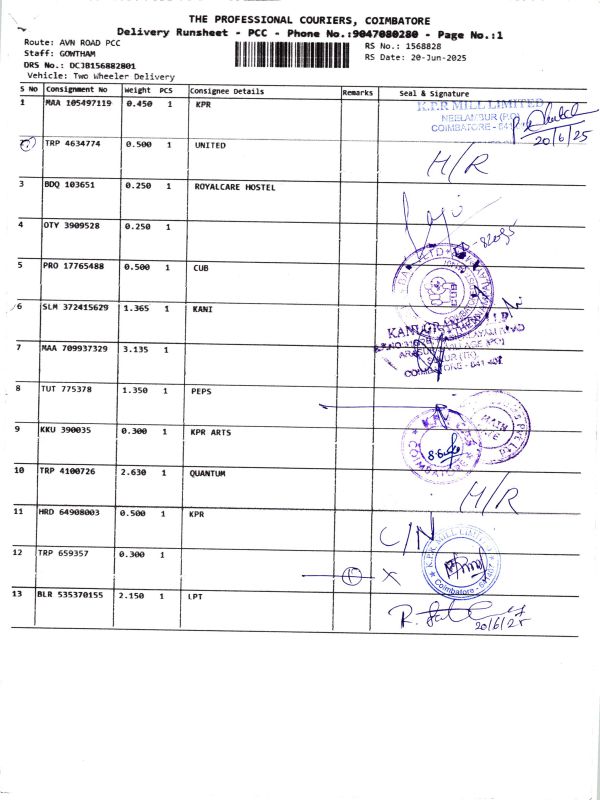 THE PROFESSIONAL COURIERS, COIMBATORE
Delivery Runsheet - PCC - Phone No.:9047080280 - Page No.:1
Route: AVN ROAD PCC
RS No.: 1568828
Staff: GOWTHAM
RS Date: 20-Jun-2025
DRS No.: DCJB156882801
Vehicle: Two Wheeler Delivery
S No Consignment No Weight PCS Consignee Details Remarks Seal & Signature
1 MAA 105497119 0.450 1 KPR
K.P.R MILL LIMITED
NEELAMBUR (P.O)
COIMBATORE - 641
20/6/25
TRP 4634774 0.500 1 UNITED
H/R
3 BDQ 103651 0.250 1 ROYALCARE HOSTEL
4 OTY 3909528 0.250 1
5 PRO 17765488 0.500 1 CUB
CUB
6 SLM 372415629 1.365 1 KANI
7 MAA 709937329 3.135 1
8 TUT 775378 1.350 1 PEPS
9 KKU 390035 0.300 1 KPR ARTS
COIMBATORE
10 TRP 4100726 2.630 1 QUANTUM
H/R
11 HRD 64908003 0.500 1 KPR
C/N
K.P.R MILL LIMITED
12 TRP 659357 0.300 1
X
Coimbatore - 641407
13 BLR 535370155 2.150 1 LPT
20/6/25